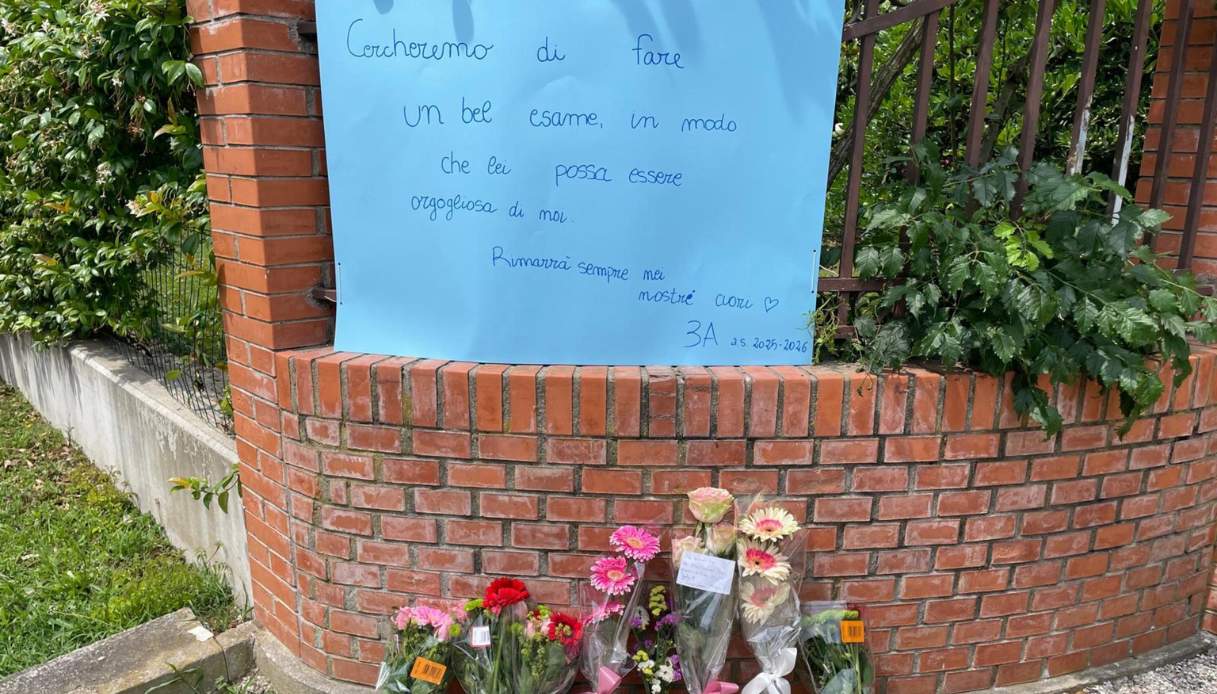 Cercheremo di fare
un bel esame, in modo
che lei possa essere
orgogliosa di noi.
Rimarrà sempre nei
nostri cuori ♡
3A a.s. 2025-2026